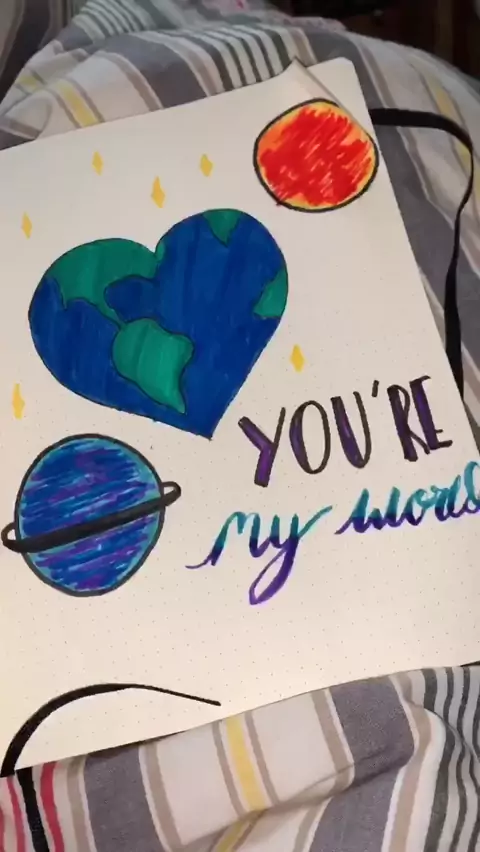 YOU'RE
my world